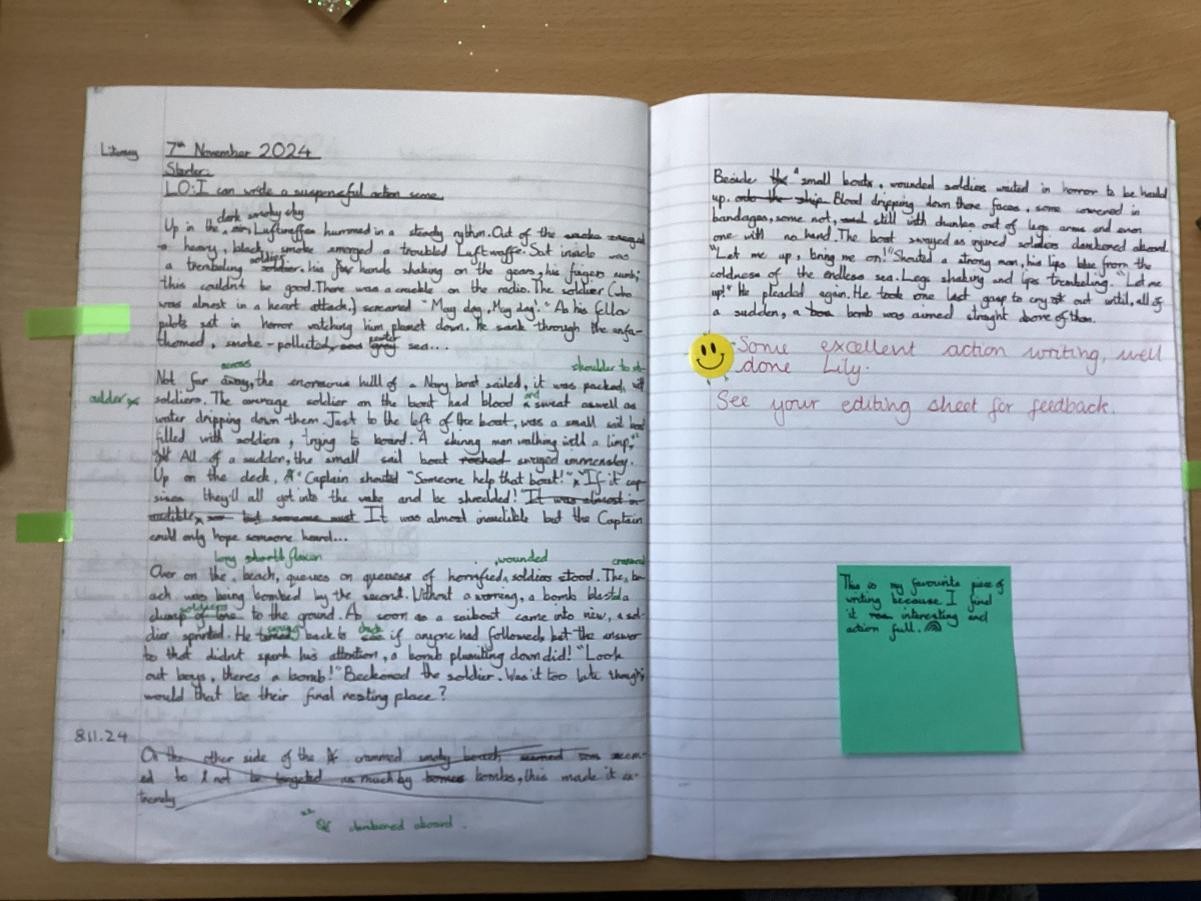 Literacy
7th November 2024
Starter:
LO: I can write a suspenseful action scene.
dark smoky sky
Up in the air, Luftwaffes hummed in a steady rythm. Out of the smoke emerged
a heavy, black, smoke emerged a troubled Luftwaffe. Sat inside was
a trembeling soldier. his hands shaking on the gears, his fingers numb;
this couldn't be good. There was a crackle on the radio. The soldier (who
was almost in a heart attack,) screamed "May day, May day!" As his fellow
pilots sat in horror watching him plumet down. He sank through the unfa-
thomed, smoke-polluted, sea...
across
shoulder to sh
Not far away, the enormous hull of a Navy boat sailed, it was packed,
oulder
soldiers. The average soldier on the boat had blood and sweat aswell as
water dripping down them. Just to the left of the boat, was a small sail boat
filled with soldiers, trying to board. A skinny man walking with a limp,
All of a sudden, the small sail boat rocked swayed immensley.
Up on the deck, A Captain shouted "Someone help that boat!" "If it cap-
sizes, they'll all got into the wake and be shredded! It was almost in-
audible, but someone must It was almost inaudible but the Captain
could only hope someone heard...
long
wounded
Over on the, beach, queues on queues of horrified, soldiers stood. The, be-
ach was being bombed by the second. Without a warning, a bomb blasted a
soldiers
clump of to the ground. As soon as a sailboat came into view, a sol-
dier sprinted. He turned back to see if anyone had followed, but the answer
swung
check
to that didnt spark his attention, a bomb plumiting down did! "Look
out boys, theres a bomb!" Beckoned the soldier. Was it too late though,
would that be their final resting place?
8.11.24
On the other side of the crammed smoky beach seemed seem-
ed to not be targeted as much by bombs, this made it ex-
tremely
clambered aboard.
Beside the small boats, wounded soldies waited in horror to be heald
up. onto the ship Blood dripping down there faces, some covered in
bandages, some not, and still with chunkes out of legs arms and even
one with no hand. The boat swayed as injured soldies clambered aboard.
"Let me up, bring me on!" Shouted a strong man, his lips blue from the
coldness of the endless sea. Legs shaking and lips trembeling. "Let me
up!" He pleaded again. He took one last gasp to cry out until, all of
a sudden, a bomb was aimed straght above of them.
Some excellent action writing, well
done Lily.
See your editing sheet for feedback.
This is my favourite piece of
writing because I find
it interesting and
action full.